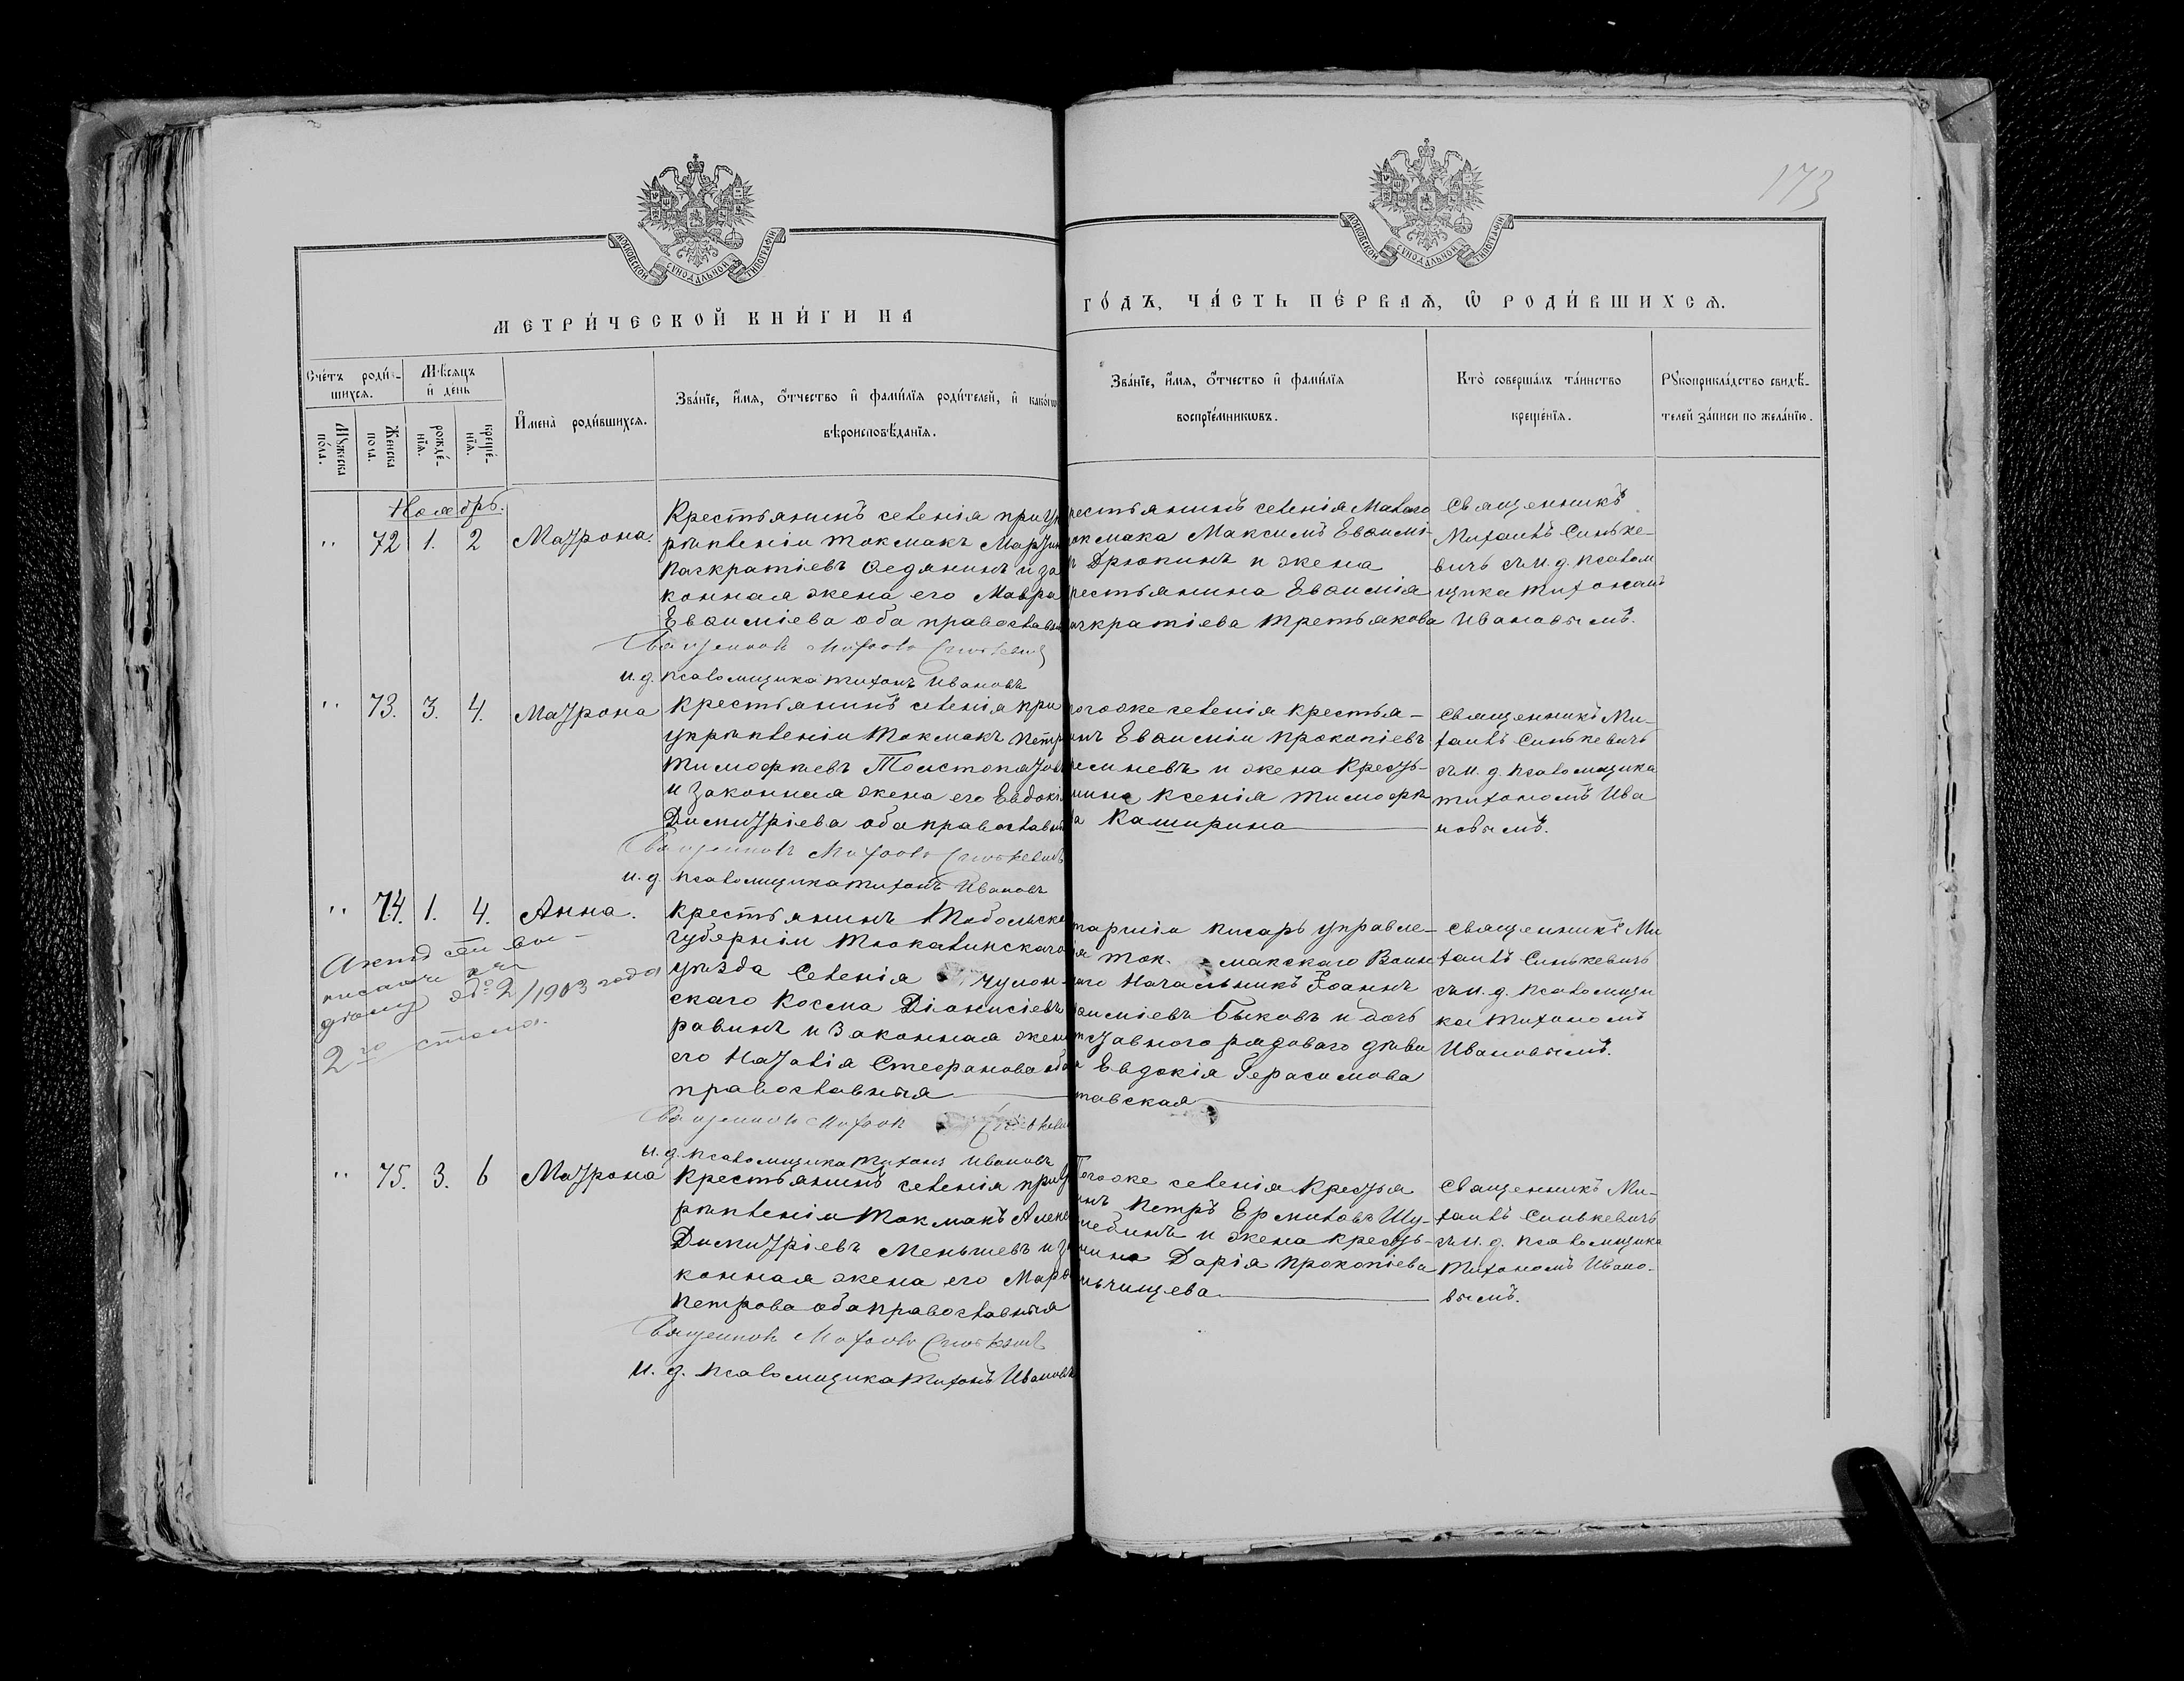 173
МОСКОВСКОЙ СѴНОДАЛЬНОЙ ТИПОГРАФІИ
МОСКОВСКОЙ СѴНОДАЛЬНОЙ ТИПОГРАФІИ
МЕТРИ́ЧЕСКОЙ КНИ́ГИ НА
ГО́ДЪ, ЧА́СТЬ ПЕ́РВАЯ, Ѡ РОДИ́ВШИХСЯ.
Сче́тъ роди́в-
шихся.
Мѣсяцъ
и҆ де́нь
Мꙋжеска
по́ла.
Женска
пола.
рожде́-
нїя.
креще́-
нїя.
И҆мена̀ роди́вшихся.
Зва́нїе, и҆́мя, ѻ҆́тчество и҆ фами́лїя роди́телей, и҆ како́гѡ
вѣроисповѣ́данїя.
Зва́нїе, и҆́мя, ѻ҆́тчество и҆ фами́лїя
воспрїе́мникѡвъ.
Кто̀ соверша́лъ та́инство
креще́нїя.
Рꙋкоприкла́дство свидѣ́-
телей за́писи по жела́нїю.
Ноябрь.
" 72 1. 2 Матрона
Крестьянинъ селенія при Ук
рѣпленіи Токмакъ Мартин
Панкратіевъ Федянинъ и за
конная жена его Мавра
Евѳиміева оба православн
Священникъ Михаилъ Синькевичъ
и. д. псаломщика Тихонъ Ивановъ
рестьянинъ селенія Малаго
окмака Максимъ Евѳимі-
Дрюкинъ и жена
рестьянина Евѳимія
нкратіева Третьякова
Священникъ
Михаилъ Синьке-
вичъ съ и. д. псалом
щика Тихономъ
Ивановымъ.
" 73. 3. 4. Матрона
Крестьянинъ селенія при
укрѣпленіи Токмакъ Петр
Тимофѣевъ Толстопятов
и законная жена его Евдокі
Димитріева оба православн
Священникъ Михаилъ Синькевичъ
и. д. псаломщика Тихонъ Ивановъ
огоже селенія крестья-
инъ Евѳимій Прокопіевъ
и жена кресть-
нина Ксенія Тимофѣ
ва Каширина
Священникъ Ми-
хаилъ Синькевичъ
съ и. д. псаломщика
Тихономъ Ива
новымъ.
" 74. 1. 4. Анна.
2го стола.
Крестьянинъ Тобольско
губерніи Тюкалинскаго
уѣзда Селенія
скаго Косма Діонисіевъ
равинъ и законная жен
его Наталія Стефанова оба
православныя
Священникъ Михаилъ Синькевичъ
и. д. псаломщика Тихонъ Ивановъ
таршій писарь управле-
ія Ток макскаго Воин
наго Начальникъ Іоаннъ
вѳиміевъ Быковъ и дочь
тставного рядоваго дѣви
Евдокія Герасимова
тавская
Священникъ Ми
хаилъ Синькевичъ
съ и. д. псаломщи
ка Тихономъ
Ивановымъ.
" 75. 3. 6 Матрона
Крестьянинъ селенія при У
рѣпленіи Токмакъ Алекс
Димитріевъ Меньшевъ и за
конная жена его Марѳ
Петрова оба православныя
Священникъ Михаилъ Синькевичъ
и. д. псаломщика Тихонъ Ивановъ
Тогоже селенія Крестья
инъ Петръ Ермиловъ Шу-
лебинъ и жена кресть-
нина Дарія Прокопіева
льчищева
Священникъ Ми-
хаилъ Синькевичъ
съ и. д. псаломщика
Тихономъ Ивано-
вымъ.